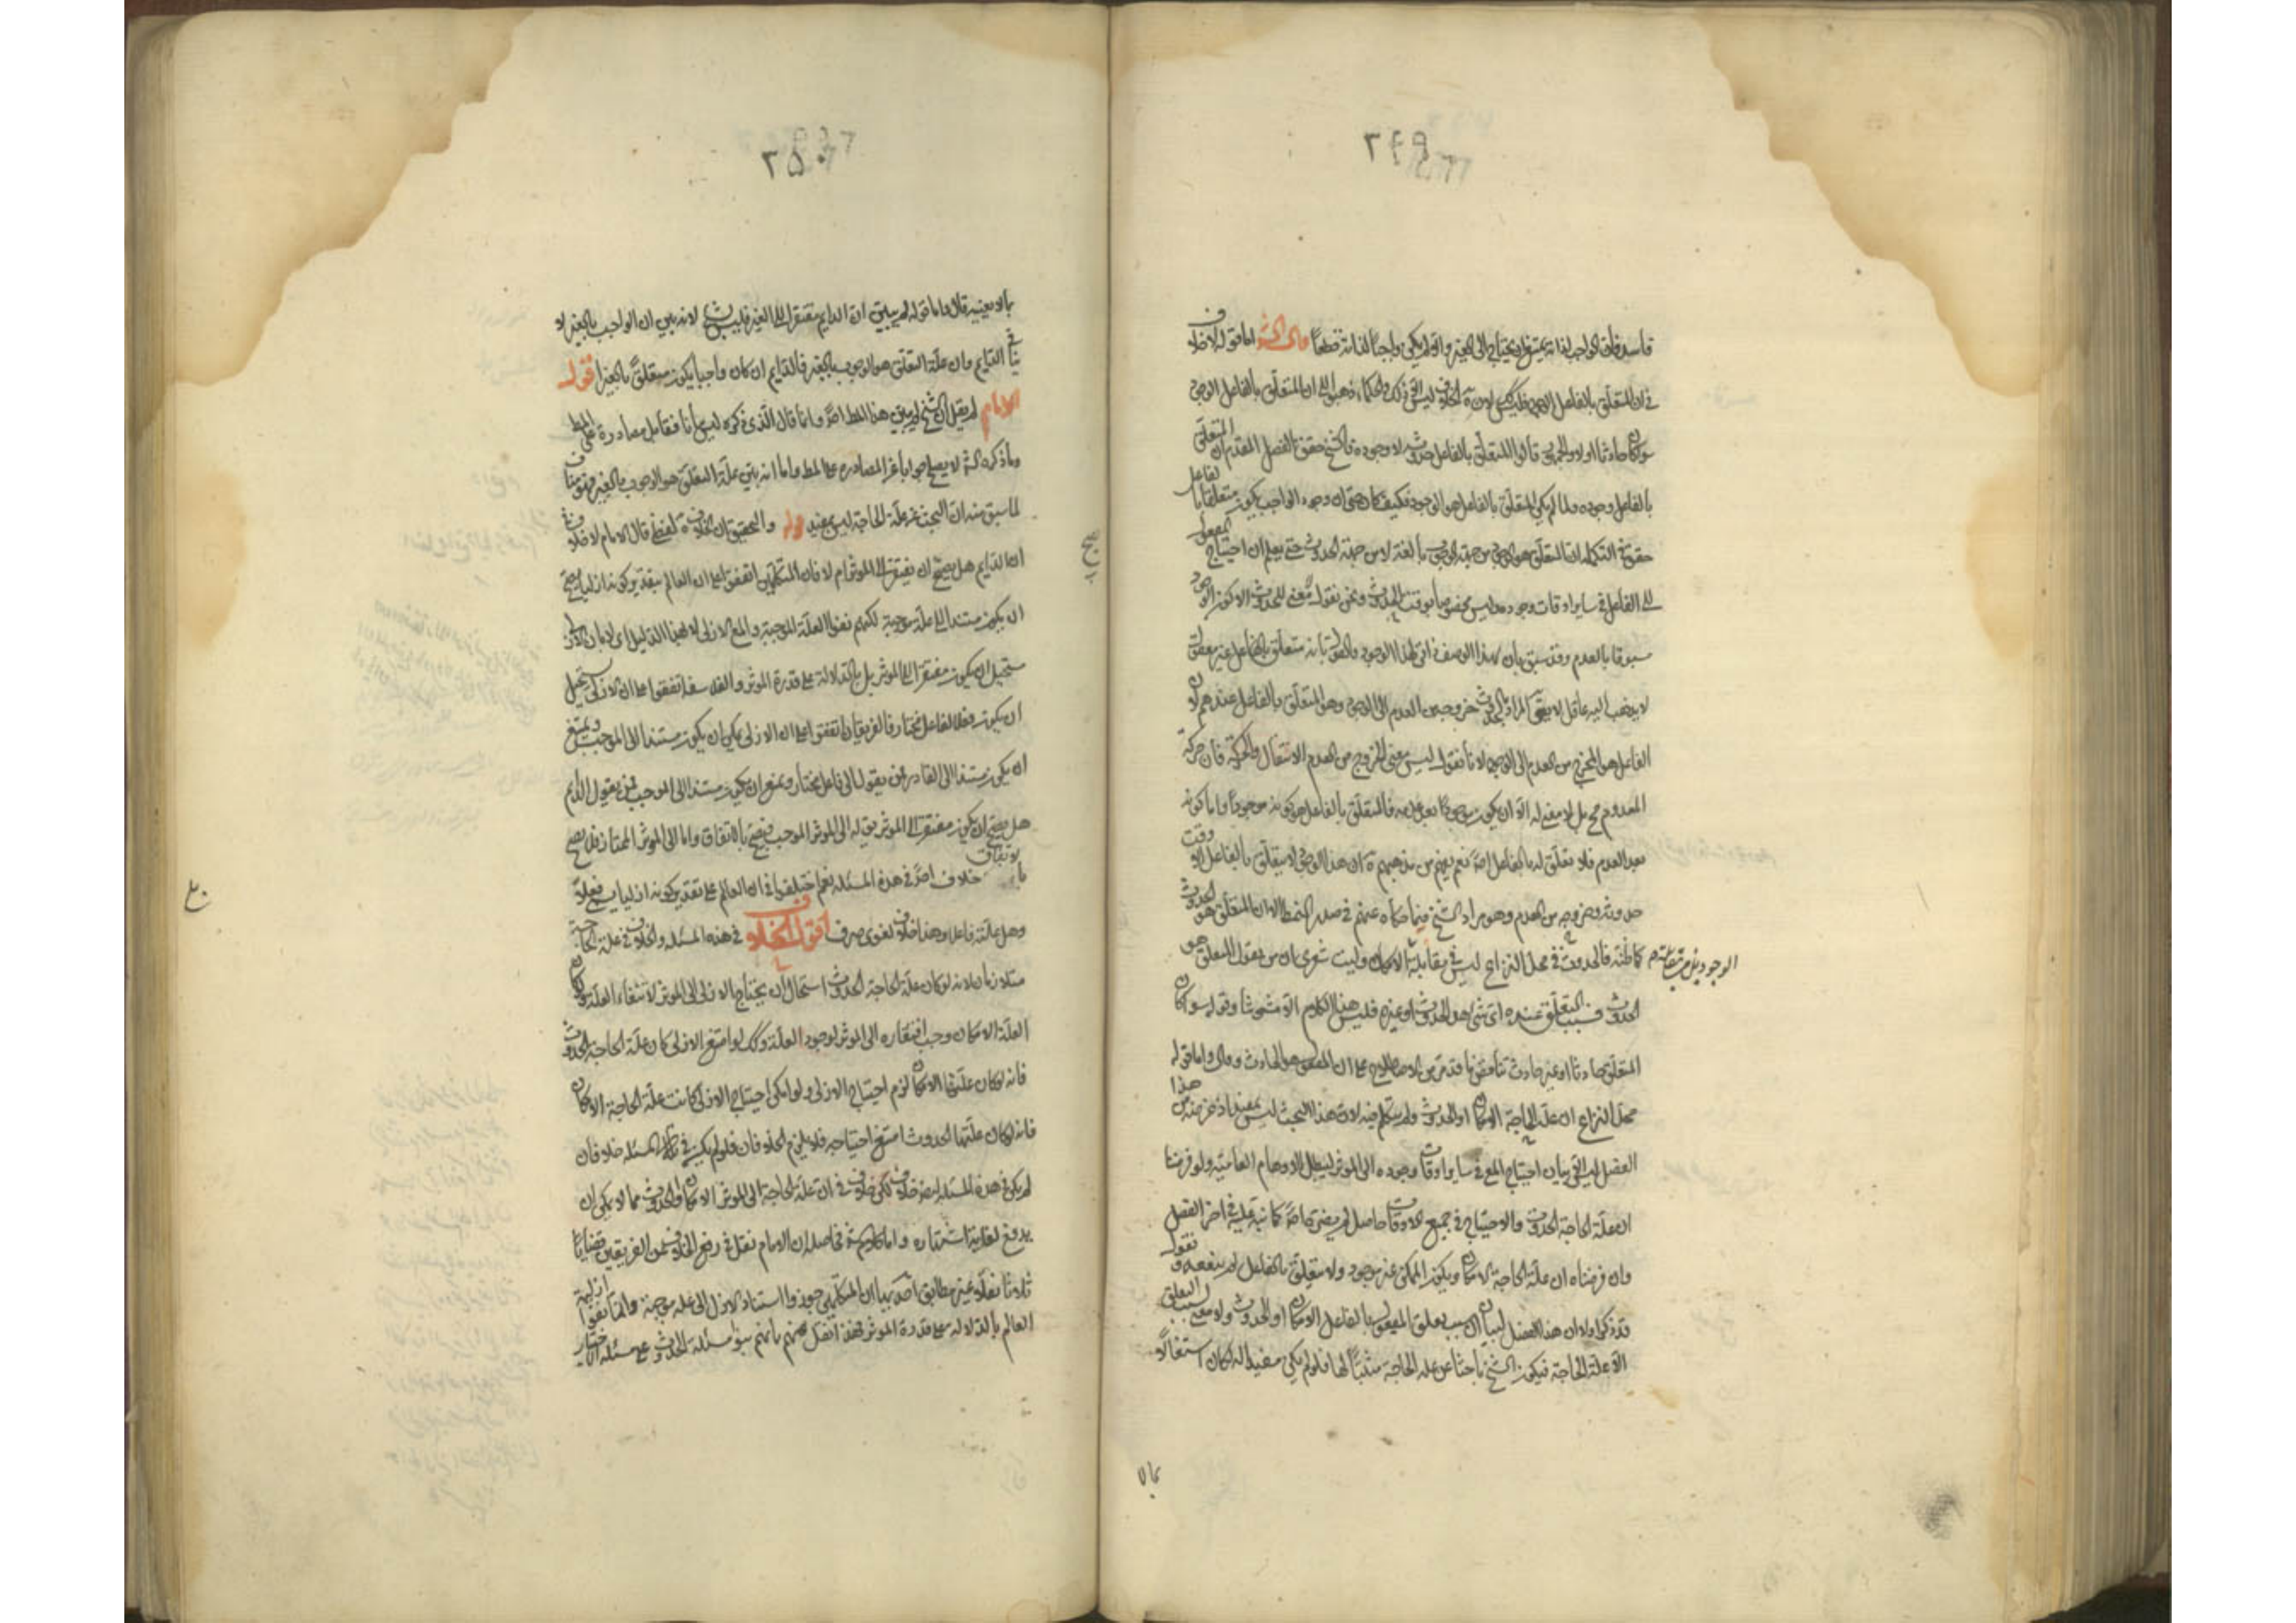 ٢٤٩
فاسد فان الواجب لذاته يمتنع ان يحتاج الى الغير والا لم يكن واجبا لذاته قطعا قال الش اما قوله لا خلاف
في ان المتعلق بالفاعل الوجود فليس كك لان الخلاف ليس الا في ذلك والحكماء ذهبوا الى ان المتعلق بالفاعل الوجود
سواء كان حادثا اولا والجمهور قالوا المتعلق بالفاعل حدوثه لا وجوده فالشيخ حقق في الفصل المتقدم ان المتعلق
بالفاعل وجوده ولما لم يكن المتعلق بالفاعل هو الوجود فكيف كان وجود الواجب يكون متعلقا بالفاعل
حقق في التكملة ان المتعلق هو الوجود من جهة الوجوب بالغير لا من جهة الحدوث حتى يعلم ان احتياج المفعول
الى الفاعل في ساير اوقات وجوده وليس مخصوصا بوقت الحدوث ونحن نقول لا معنى للحدوث الا كون الوجود
مسبوقا بالعدم وقد سبق بان هذا الوصف ذاتي لهذا الوجود والقول بانه متعلق بالفاعل غير معقول
لا يذهب اليه عاقل لا يقال المراد بالحدوث خروجه من العدم الى الوجود وهو المتعلق بالفاعل عندهم لان
الفاعل هو المخرج من العدم الى الوجود لانا نقول ليس معنى الخروج من العدم الانتقال والحركة فان حركة
المعدوم محال بل لا معنى له الا ان يكون موجودا بعد عدمه فالمتعلق بالفاعل هو كونه موجودا واما كونه
بعد العدم فلا تعلق له بالفاعل اصلا نعم يفهم من مذهبهم ان هذا الوجود لا يتعلق بالفاعل الا وقت
حدوثه وخروجه من العدم وهو مراد الشيخ فيما حكاه عنهم في صدر النمط لا ان المتعلق هو الحدوث
كما ظنه فالحدوث في محل النزاع ليس في مقابلة الامكان وليت شعري ان من يقول المتعلق هو
الحدوث فسبب التعلق عنده اي شيء هو الحدوث او غيره فليس هذا الكلام الا مشوشا وقوله سواء كان
المتعلق حادثا او غير حادث
محل النزاع ان علة الحاجة الامكان او الحدوث ولم يتكلم فيه لان هذا البحث ليس بمفيد اذ غرضه من هذا
الفصل ليس الا في بيان احتياج المع في ساير اوقات وجوده الى الموثر ليبطل الاوهام العامية ولو فرضنا
ان علة الحاجة الحدوث والاحتياج في جميع الاوقات حاصل لم يضره خاصة كما نبه عليه في اخر الفصل
وان فرضناه ان علة الحاجة الامكان ويكون الممكن غير موجود ولا متعلق بالفاعل لم ينفعه فنقول
قد ذكر اولا ان هذا الفصل لبيان سبب تعلق المفعول بالفاعل الامكان او الحدوث ولا معنى لسبب التعلق
الا علة الحاجة فيكون الشيخ باحثا عن علة الحاجة مثبتا لها فلو لم يكن مفيدا له لكان اشتغالا
بما لا
٢٥٠
بما لا يعنيه قال واما قوله لم يبين ان الدايم مفتقر الى الغير فليس بشيء لانه بين ان الواجب بالغير لا
ينافي الدايم وان علة التعلق هو الوجوب بالغير فالدايم ان كان واجبا يكون متعلقا بالغير اقول
الامام لم يقل ان الشيخ لم يبين هذا المط اصلا وانما قال الذي ذكره ليس بيانا فقابل مصادرة على المط
وما ذكره الش لا يصلح جوابا عن المصادرة على المط واما انه بين علة التعلق هو الوجوب بالغير فهو مناف
لما سبق منه ان البحث عن علة الحاجة ليس بمفيد قوله والتحقيق ان الخلاف لفظي قال الامام لا خلاف في
ان الدايم هل يصح ان يفتقر الى الموثر ام لا فان المتكلمين اتفقوا على ان العالم بتقدير كونه ازليا يصح
ان يكون مستندا الى علة موجبة لكنهم نفوا العلة الموجبة والمع الازلي لا لهذا الدليل اي لا بان الازلي
مستحيل ان يكون مفتقرا الى الموثر بل بالدلالة على قدرة الموثر والفلاسفة اتفقوا على ان الازلي يستحيل
ان يكون فعلا لفاعل مختار فالفريقان اتفقوا على ان الازلي يمكن ان يكون مستندا الى الموجب ويمتنع
ان يكون مستندا الى القادر فمن يقول الى فاعل مختار ويمتنع ان يكون مستندا الى الموجب فمن يقول الدايم
هل يصح ان يكون مفتقرا الى الموثر يق له الى الموثر الموجب فيصح بالاتفاق واما الى الموثر المختار فلا يصح
بالاتفاق خلاف اصلا في هذه المسئلة نعم اختلفوا في ان العالم على تقدير كونه ازليا يسمى فعلا
وهل علته فاعل وهذا خلاف لغوي صرف اقول الخلاف في هذه المسئلة والخلاف في علة الحاجة
متلازمان لانه لو كان علة الحاجة الحدوث استحال ان يحتاج الازلي الى الموثر لانتفاء العلة ولو كان
العلة الامكان وجب افتقاره الى الموثر لوجود العلة وكك لو امتنع الازلي كان علة الحاجة الحدوث
فانه لو كان علتها الامكان لزم احتياج الازلي ولو امكن احتياج الازلي كانت علة الحاجة الامكان
فانه لو كان علتها الحدوث امتنع احتياجه فلا يلزم الخلافان فلو لم يكن في تلك المسئلة خلاف فان
لم يكن في هذه المسئلة ايضا خلاف لكن خلاف في ان علة الحاجة الى الموثر الامكان او الحدوث مما لا يمكن ان
يدفع لغاية اشتهاره واما كلام الش فحاصله ان الامام نقل في رفع الخلاف من الفريقين قضايا
ثلاثا نقلا غير مطابق احديها ان المتكلمين جوزوا استناد الازلي الى علة موجبة وانما نفوا ازلية
العالم بالدلالة على قدرة الموثر فهذا النقل عنهم بانهم بنوا مسئلة الحدوث على مسئلة الاختيار